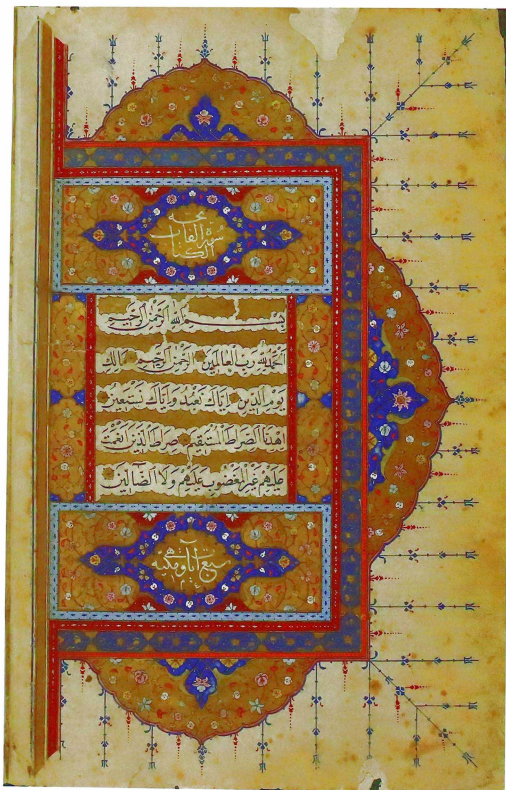 سورة الفاتحة
الكتاب
بسم الله الرحمن الرحيم
الحمد لله رب العالمين الرحمن الرحيم مالك
يوم الدين اياك نعبد واياك نستعين
اهدنا الصراط المستقيم صراط الذين انعمت
عليهم غير المغضوب عليهم ولا الضالين
سبع آيات وهي مكية